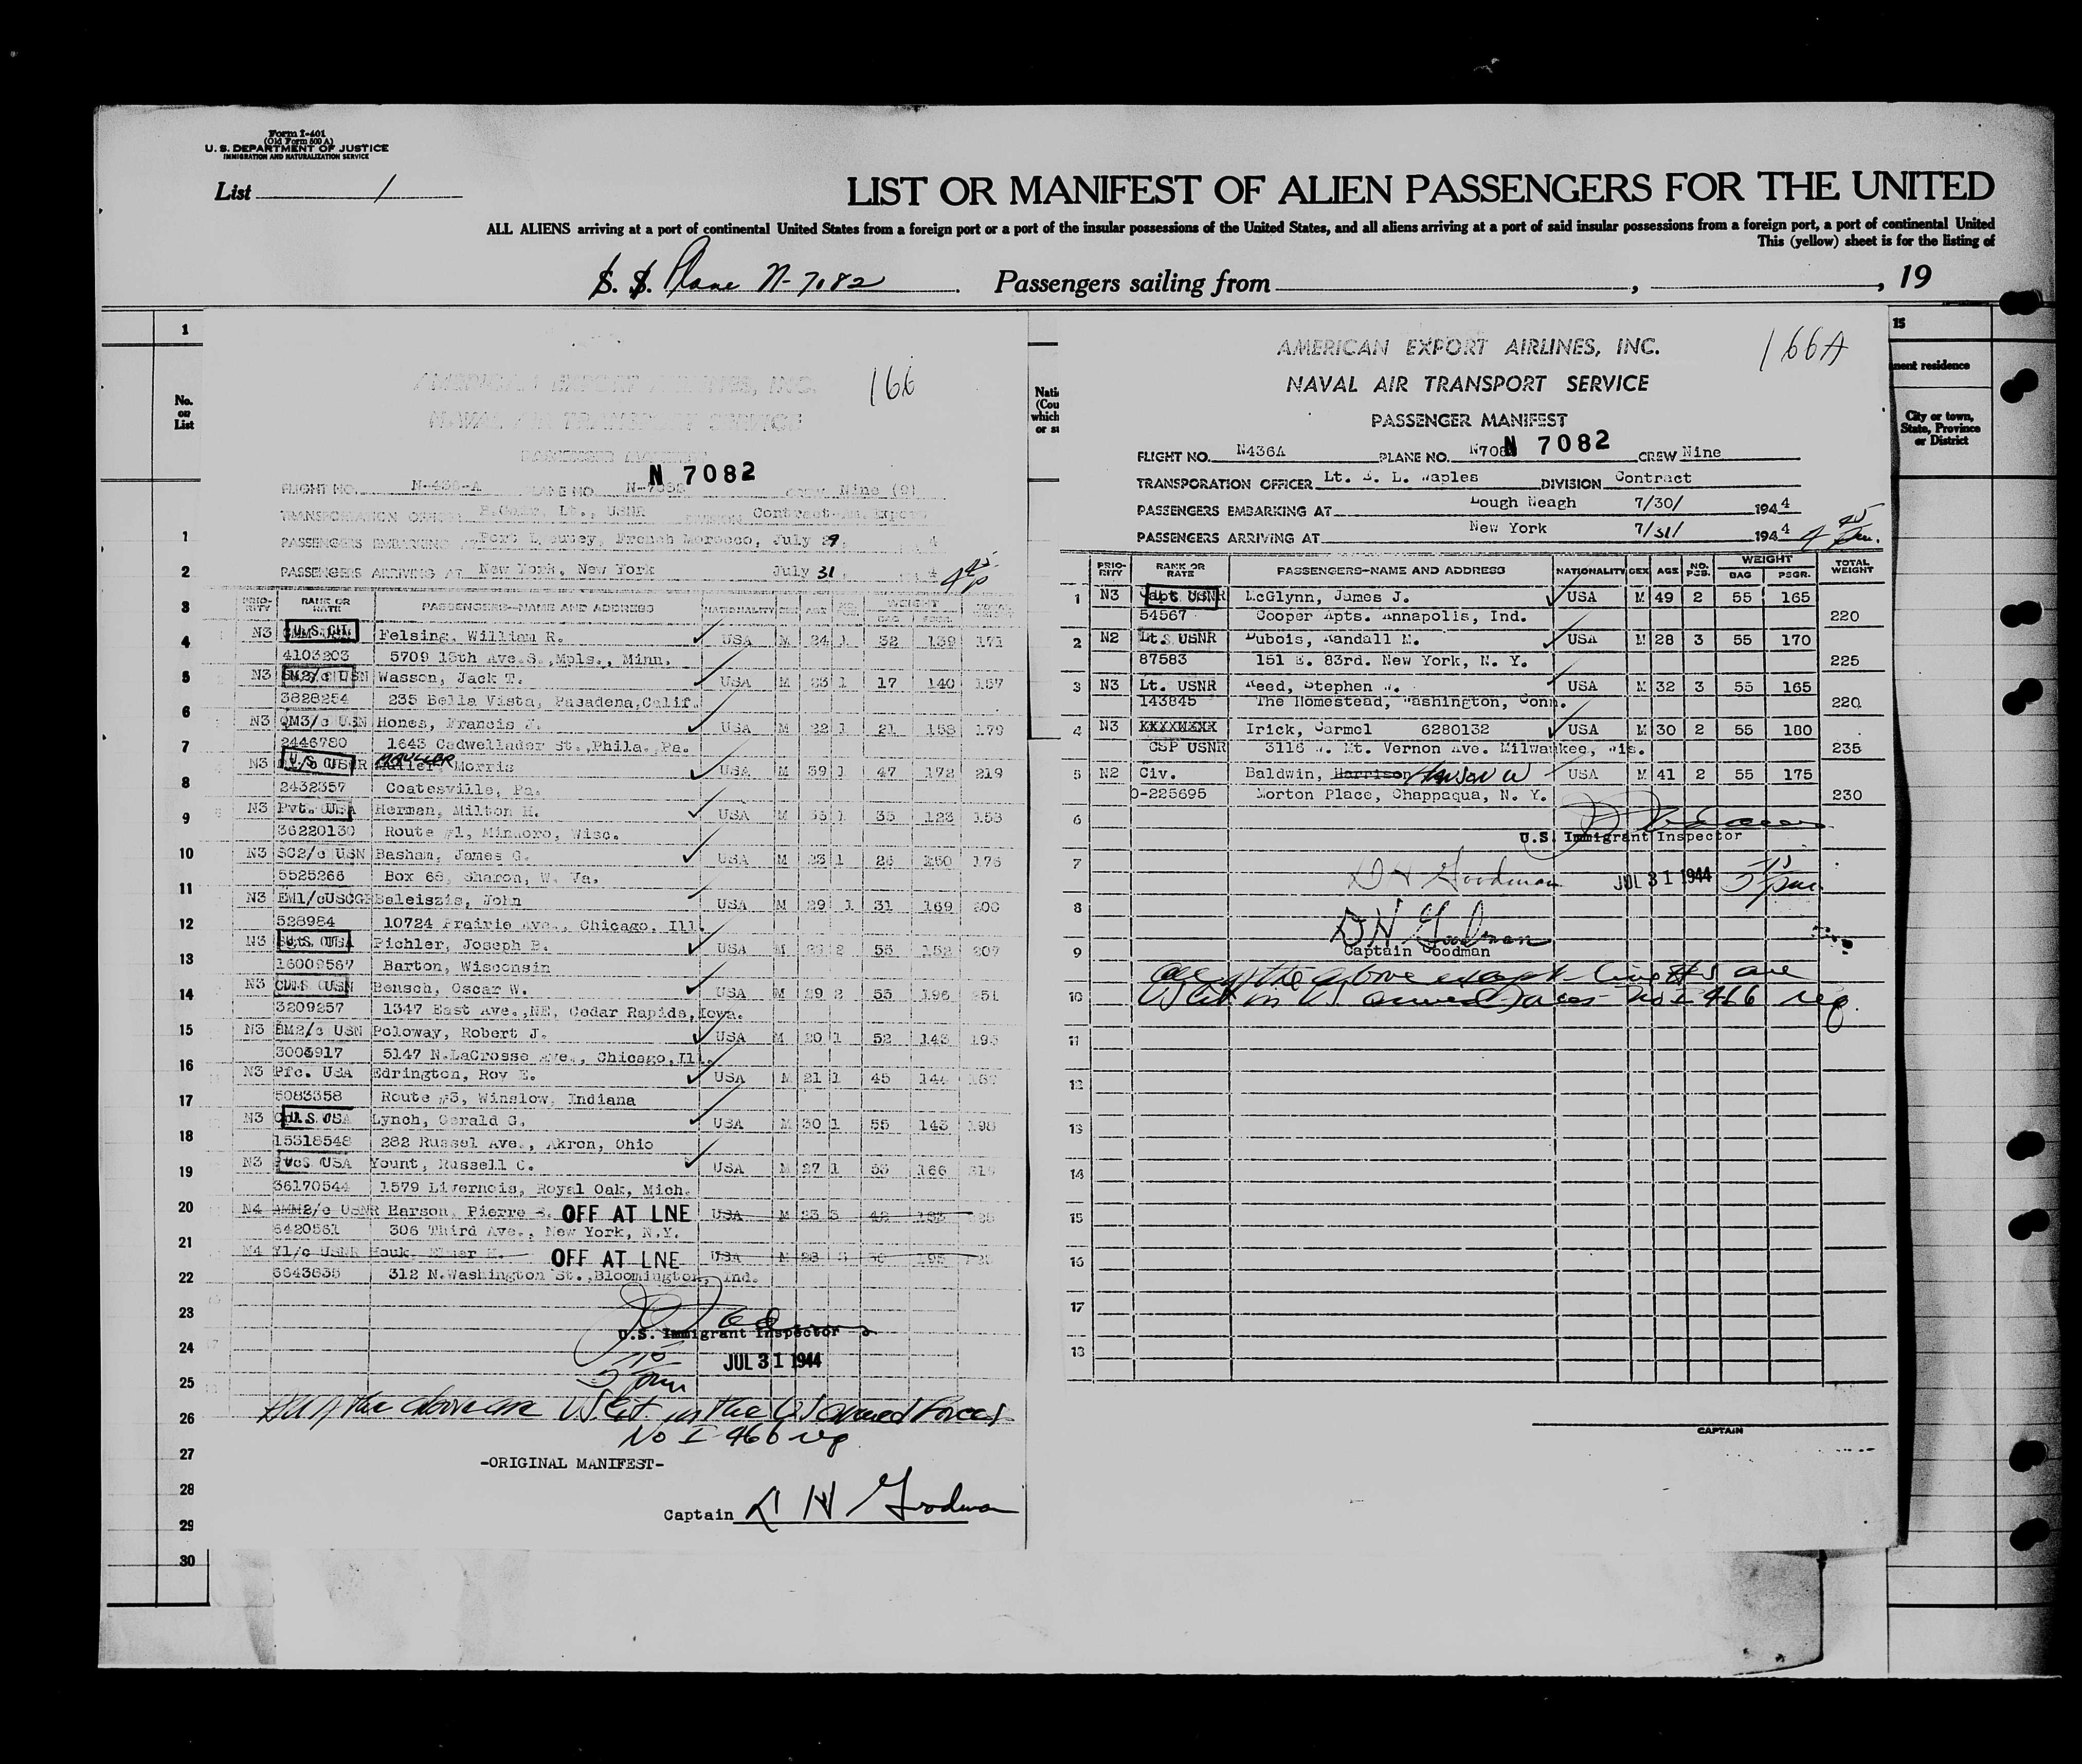 Form I-401
(Old Form 500 A)
U. S. DEPARTMENT OF JUSTICE
IMMIGRATION AND NATURALIZATION SERVICE
List 1
LIST OR MANIFEST OF ALIEN PASSENGERS FOR THE UNITED
ALL ALIENS arriving at a port of continental United States from a foreign port or a port of the insular possessions of the United States, and all aliens arriving at a port of said insular possessions from a foreign port, a port of continental United
This (yellow) sheet is for the listing of
S. S. Plane N-7082 Passengers sailing from , , 19
1
No. on List
166
AMERICAN EXPORT AIRLINES, INC.
NAVAL AIR TRANSPORT SERVICE
PASSENGER MANIFEST
N 7082
FLIGHT NO. N-436-A PLANE NO. N-7082 CREW Nine (9)
TRANSPORTATION OFFICER Lt., USNR DIVISION Contract-Am. Export
PASSENGERS EMBARKING AT Port Lyautey, French Morocco, July 29, 4
PASSENGERS ARRIVING AT New York, New York July 31, 4 4 45 P
PRIORITY RANK OR RATE PASSENGERS-NAME AND ADDRESS NATIONALITY SEX AGE WEIGHT
N3 CMM USN U.S. CIT. Felsing, William R. USA M 24 1 32 139 171
4103203 5709 15th Ave.S.,Mpls., Minn.
N3 SM2/c USN Wasson, Jack T. USA M 23 1 17 140 157
3828254 235 Bella Vista, Pasadena,Calif.
N3 QM3/c USN Hones, Francis J. USA M 22 1 21 158 179
2446780 1643 Cadwellader St.,Phila. Pa.
N3 U.S. CIT. Muller, Morris USA M 39 1 47 172 219
2432357 Coatesville, Pa.
N3 Pvt. USA Herman, Milton H. USA M 33 1 35 123 153
36220130 Route #1, Mindoro, Wisc.
N3 SC2/c USN Basham, James G. USA M 23 1 26 150 176
5525266 Box 68, Sharon, W. Va.
N3 EM1/cUSCGR Baleiszis, John USA M 29 1 31 169 200
528984 10724 Prairie Ave., Chicago, Ill.
N3 Pichler, Joseph B. USA M 2 55 152 207
16009567 Barton, Wisconsin
N3 Bensch, Oscar W. USA M 29 2 55 196 251
3209257 1347 East Ave.,NE, Cedar Rapids,Iowa.
N3 BM2/c USN Poloway, Robert J. USA M 20 1 52 143 195
3003917 5147 N.LaCrosse Ave., Chicago,Ill.
N3 Pfc. USA Edrington, Roy E. USA M 21 1 45 144
5083358 Route #3, Winslow, Indiana
N3 Lynch, Gerald G. USA M 30 1 55 143 198
15318548 282 Russel Ave., Akron, Ohio
N3 Yount, Russell C. USA M 27 1 53 166 219
36170544 1579 Livernois, Royal Oak, Mich.
N4 AMM2/c USNR Harson, Pierre S. OFF AT LNE USA M 23 3 42
6420561 306 Third Ave., New York, N.Y.
N4 Y1/c USNR Houk, Elmer OFF AT LNE USA M 28 195
6643635 312 N.Washington St.,Bloomington, Ind.
U.S. Immigrant Inspector
JUL 31 1944
All of the above are US Cit in the US armed Forces
No I 466 req
-ORIGINAL MANIFEST-
Captain D H Goodman
166A
AMERICAN EXPORT AIRLINES, INC.
NAVAL AIR TRANSPORT SERVICE
PASSENGER MANIFEST
FLIGHT NO. N436A PLANE NO. N708 N 7082 CREW Nine
TRANSPORATION OFFICER Lt. E. L. Waples DIVISION Contract
PASSENGERS EMBARKING AT Lough Neagh 7/30/ 1944
PASSENGERS ARRIVING AT New York 7/31/ 1944 4 45 Pm.
PRIORITY RANK OR RATE PASSENGERS-NAME AND ADDRESS NATIONALITY SEX AGE NO. PCS. WEIGHT BAG PSGR. TOTAL WEIGHT
1 N3 Capt. USNR McGlynn, James J. USA M 49 2 55 165
54567 Cooper Apts. Annapolis, Ind. 220
2 N2 Lt. USNR Dubois, Randall M. USA M 28 3 55 170
87583 151 E. 83rd. New York, N. Y. 225
3 N3 Lt. USNR Reed, Stephen W. USA M 32 3 55 165
143845 The Homestead, Washington, Conn. 220
4 N3 XXXXMXXX Irick, Carmel 6280132 USA M 30 2 55 180
CSP USNR 3116 W. Mt. Vernon Ave. Milwaukee, Wis. 235
5 N2 Civ. Baldwin, Harrison Hanson W USA M 41 2 55 175
O-225695 Norton Place, Chappaqua, N. Y. 230
6
U.S. Immigrant Inspector
7 D H Goodman JUL 31 1944
8 D H Goodman
9 Captain Goodman
All of the above except line #5 are
10 US Cit in US armed Forces No I 466 req.
11
12
13
14
15
16
17
18
CAPTAIN
15
nent residence
City or town, State, Province or District
1
2
3
4
5
6
7
8
9
10
11
12
13
14
15
16
17
18
19
20
21
22
23
24
25
26
27
28
29
30